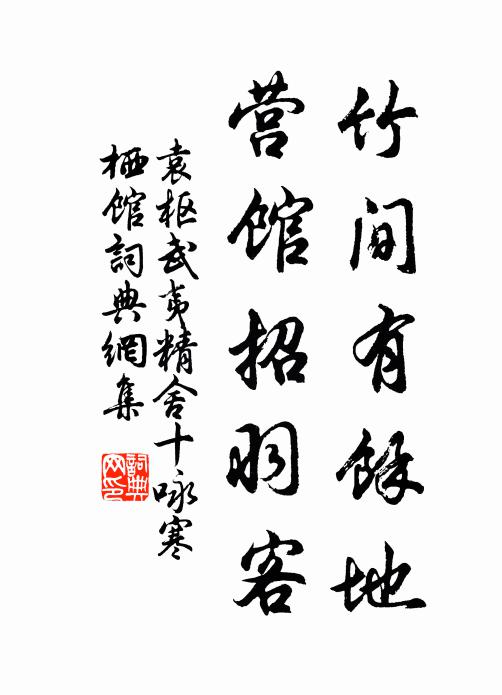 竹间有馀地
营馆招羽客
袁枢武夷精舍十咏寒
栖馆词典网集
词典网印